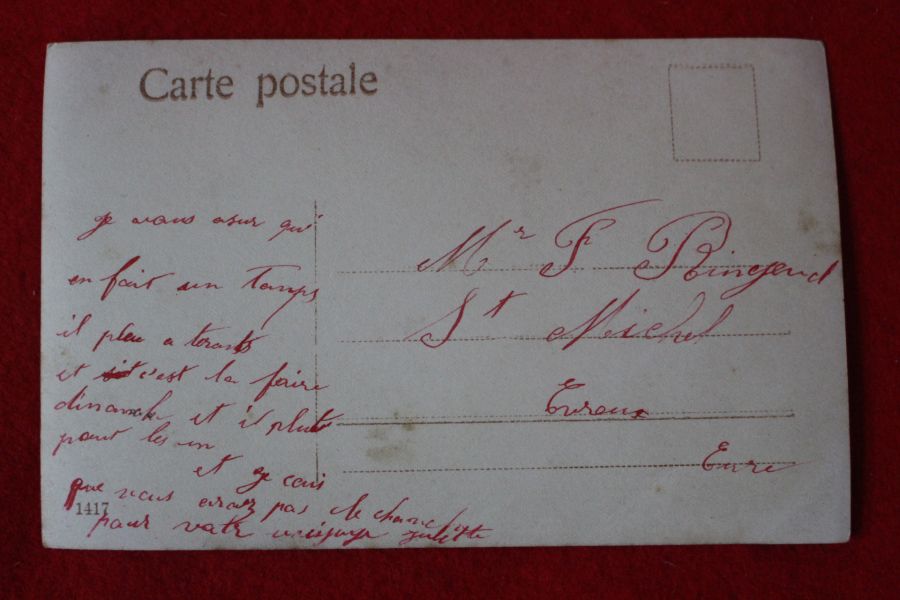 Carte postale
je vous asur qu'
en fait un Tamps
il pleu a torants
et c'est la foire
dimanche et il pleut
et je crois
que vous avez pas de chance
pour votr juliette
1417
Mr F
St Michel
Evreux
Eure